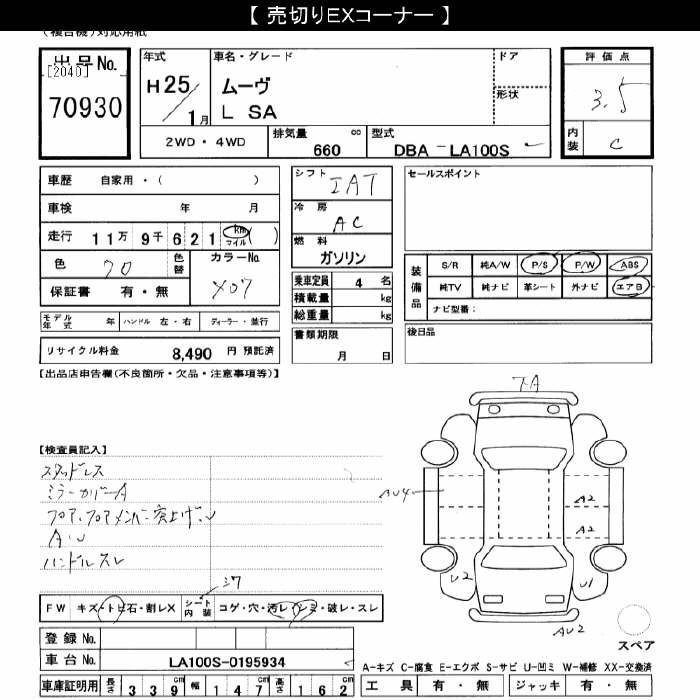 【 売切りEXコーナー 】
(複合機)対応用紙
出品No.
[2040]
70930
年式
H25/1月
車名・グレード
ムーヴ
L SA
ドア
形状
評価点
3.5
内装
C
2WD・4WD
排気量 cc
660
型式
DBA-LA100S
車歴 自家用・( )
車検 年 月
走行 11万 9千 621 km マイル ( )
色
色替
カラーNo
X07
保証書 有・無
シフト
IAT
冷房
AC
燃料
ガソリン
乗車定員 4 名
積載量 kg
総重量 kg
セールスポイント
装備品
S/R 純A/W P/S P/W ABS
純TV 純ナビ 革シート 外ナビ エアB
ナビ型番:
モデル年式 年 ハンドル 左・右 ディーラー・並行
書類期限
月 日
後日品
リサイクル料金 8,490 円 預託済
【出品店申告欄(不良箇所・欠品・注意事項等)】
下A
【検査員記入】
スタッドレス
ミラーカバーA
フロア、フロアメンバー突上げ、U
AU
ハンドルスレ
AU4
A2
A2
U2
U1
AU2
シワ
FW キズ・トビ石・割レX
シート内装 コゲ・穴・汚レ・シミ・破レ・スレ
登録No.
車台No. LA100S-0195934
スペア
A-キズ C-腐食 E-エクボ S-サビ U-凹ミ W-補修 XX-交換済
車庫証明用 長さ 339cm 幅 147cm 高さ 162cm
工具 有・無 ジャッキ 有・無